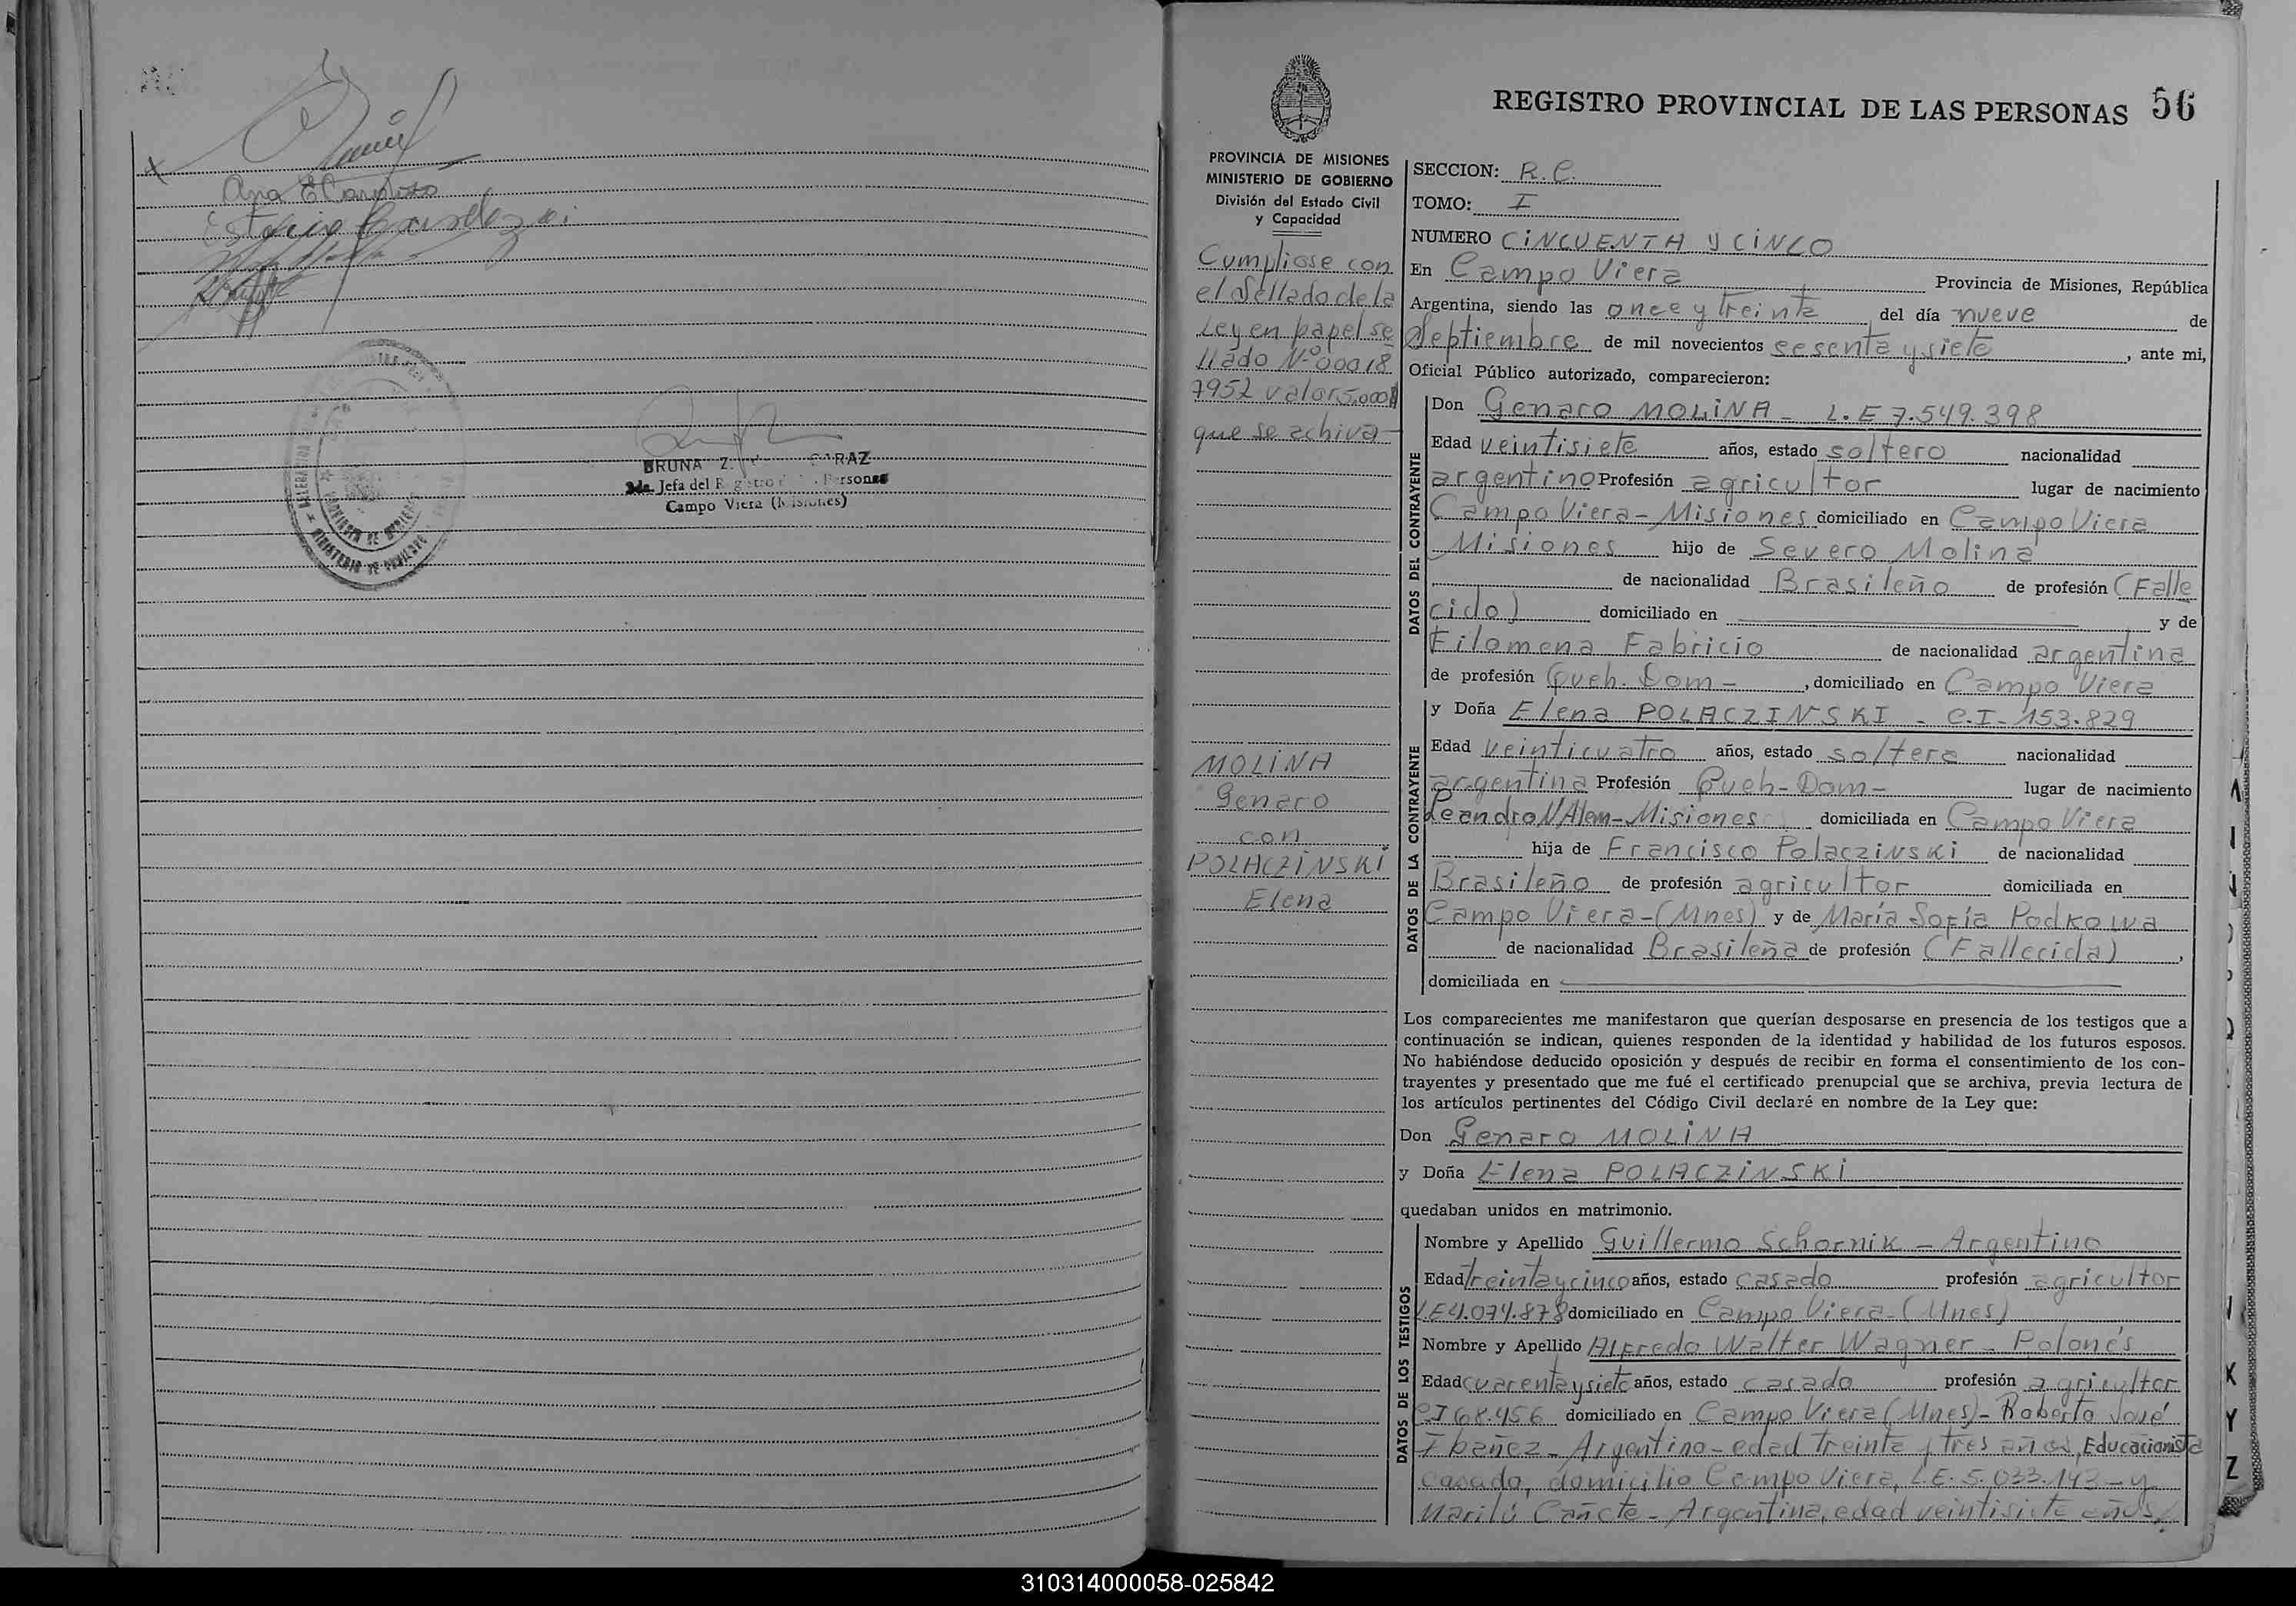 Ana E Cardozo
BRUNA Z. ARAZ
Jefa del Registro Personas
Campo Viera (Misiones)
MINISTERIO DE GOBIERNO
REGISTRO PROVINCIAL DE LAS PERSONAS 56
PROVINCIA DE MISIONES
MINISTERIO DE GOBIERNO
División del Estado Civil
y Capacidad
Cumpliose con
el Sellado de la
Ley en papel se
llado Nº 00018
7952 valor 5.000
que se achiva-
MOLINA
Genaro
con
POLACZINSKI
Elena
SECCION: R.C.
TOMO: I
NUMERO CINCUENTA y CINCO
En Campo Viera Provincia de Misiones, República
Argentina, siendo las once y treinta del día nueve de
Septiembre de mil novecientos sesenta y siete, ante mi,
Oficial Público autorizado, comparecieron:
DATOS DEL CONTRAYENTE
Don Genaro MOLINA - L.E 7.549.398
Edad veintisiete años, estado soltero nacionalidad
argentino Profesión agricultor lugar de nacimiento
Campo Viera - Misiones domiciliado en Campo Viera
Misiones hijo de Severo Molina
de nacionalidad Brasileño de profesión (Falle
cido) domiciliado en y de
Filomena Fabricio de nacionalidad argentina
de profesión Queh. Dom -, domiciliado en Campo Viera
DATOS DE LA CONTRAYENTE
y Doña Elena POLACZINSKI - C.I - 153.829
Edad veinticuatro años, estado soltera nacionalidad
argentina Profesión Queh - Dom - lugar de nacimiento
Leandro N Alem - Misiones domiciliada en Campo Viera
hija de Francisco Polaczinski de nacionalidad
Brasileño de profesión agricultor domiciliada en
Campo Viera - (Mnes) y de María Sofía Podkowa
de nacionalidad Brasileña de profesión (Fallecida),
domiciliada en
Los comparecientes me manifestaron que querían desposarse en presencia de los testigos que a
continuación se indican, quienes responden de la identidad y habilidad de los futuros esposos.
No habiéndose deducido oposición y después de recibir en forma el consentimiento de los con-
trayentes y presentado que me fué el certificado prenupcial que se archiva, previa lectura de
los artículos pertinentes del Código Civil declaré en nombre de la Ley que:
Don Genaro MOLINA
y Doña Elena POLACZINSKI
quedaban unidos en matrimonio.
DATOS DE LOS TESTIGOS
Nombre y Apellido Guillermo Schornik - Argentino
Edad treinta y cinco años, estado casado profesión agricultor
L.E 4.074.878 domiciliado en Campo Viera - (Mnes)
Nombre y Apellido Alfredo Walter Wagner - Polonés
Edad cuarenta y siete años, estado casado profesión agricultor
C I 68.456 domiciliado en Campo Viera (Mnes) - Roberto José
Ibañez - Argentino - edad treinta y tres años, Educacionista
casado, domicilio Campo Viera, L.E. 5.033.143 - y
Marilú Cañete - Argentina, edad veintisiete años
K
Y
Z
310314000058-025842